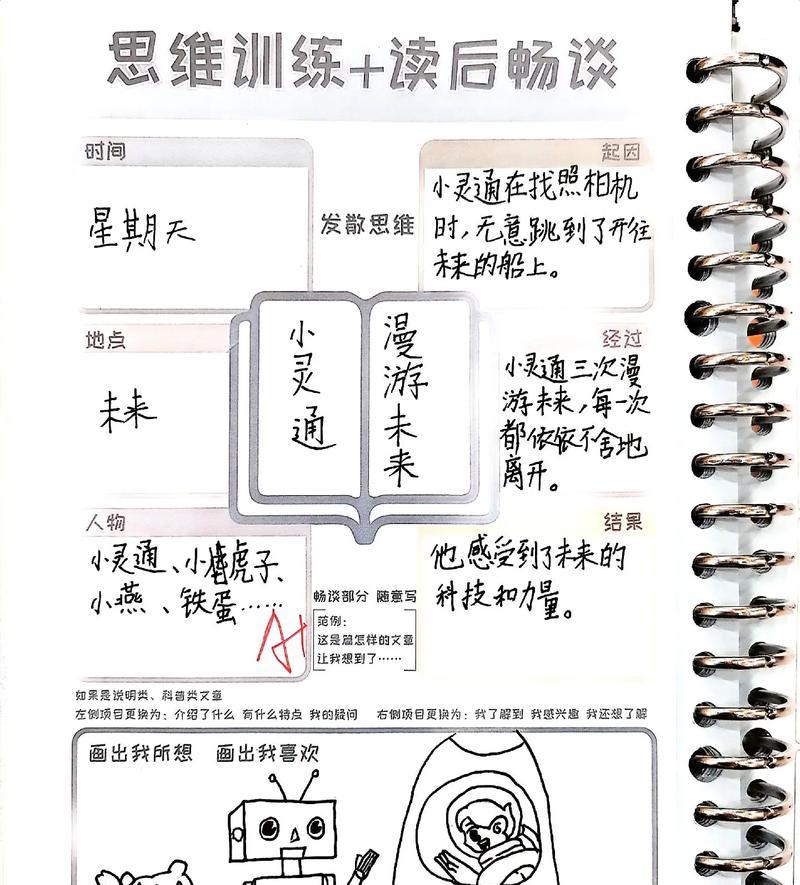 思维训练+读后畅谈
时间
星期天
发散思维
起因
小灵通在找照相机
时，无意跳到了开往
未来的船上。
地点
未来
小灵通
漫游未来
经过
小灵通三次漫
游未来，每一次
都依依不舍地
离开。
人物
小灵通、小虎子、
小燕、铁蛋……
A+
畅谈部分 随意写
范例：
这是篇怎样的文章
让我想到了……
结果
他感受到了未来的
科技和力量。
如果是说明类、科普类文章
左侧项目更换为：介绍了什么 有什么特点 我的疑问 右侧项目更换为：我了解到 我感兴趣 我还想了解
画出我所想 画出我喜欢